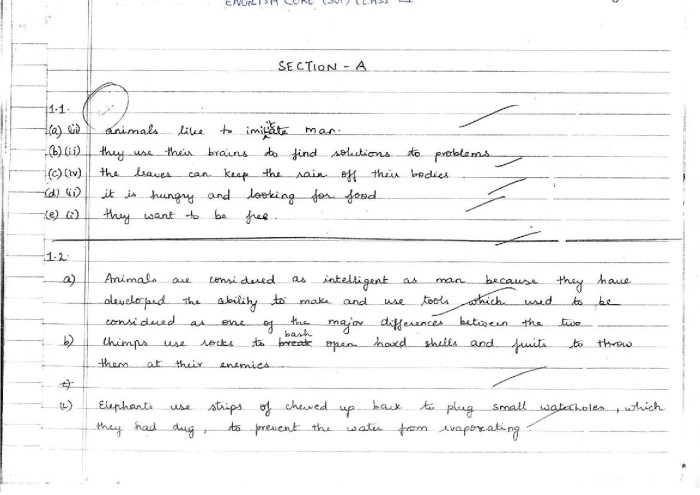 ENGLISH CORE (301) CLASS
SECTION - A
1.1.
(a) (ii) animals like to imitate man.
(b) (ii) they use their brains to find solutions to problems
(c) (iv) the leaves can keep the rain off their bodies
(d) (ii) it is hungry and looking for food
(e) (i) they want to be free.
1.2.
a) Animals are considered as intelligent as man because they have
developed the ability to make and use tools which used to be
considered as one of the major differences between the two
bash
b) Chimps use rocks to break open hard shells and fruits to throw
them at their enemies
c)
(c) Elephants use strips of chewed up bark to plug small waterholes, which
they had dug, to prevent the water from evaporating